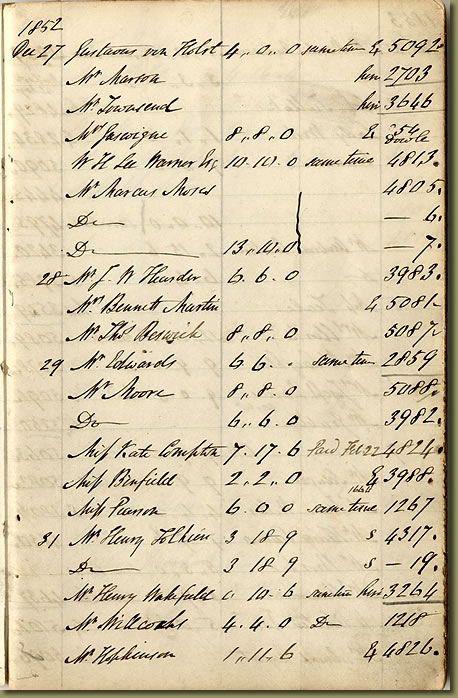 1852
Dec 27 Gustavus von Holst 4 ,, 0 ,, 0 same time E 5092.
Mr Marson hire 2703
Mr Townsend hire 3646
Mrs Gascoigne 8 ,, 8 ,, 0 E 54 Double
W H Lee Warner Esq 10. 10. 0 same time 4813.
Mr Marcus Moses 4805.
Do — 6.
Do 13 ,, 10. 0 — 7.
28 Mr J. W Hearder 6. 6. 0 3983.
Mrs Bennett Martin E 5081
Mr Thos Beswick 8 ,, 8 ,, 0 5087
29 Mr Edwards 6 6. . same time 2859
Mr Moore 8 ,, 8. 0 5088.
Do 6 ,, 6. 0 3982.
Miss Kate Compton 7. 17. 6 Paid Feb 22 4824.
Miss Binfield 2 ,, 2. 0 E 3988.
Miss Pearson 6. 0 0 same time 1267
31 Mr Henry Tolkien 3 18 9 s 4317.
Do 3 18 9 s — 19.
Mr Henry Wakefield 0 10. 6 same time hire 3264
Mr Willcocks 4. 4. 0 Do 1218
Mr Hopkinson 1 ,, 11 ,, 6 E 4826.